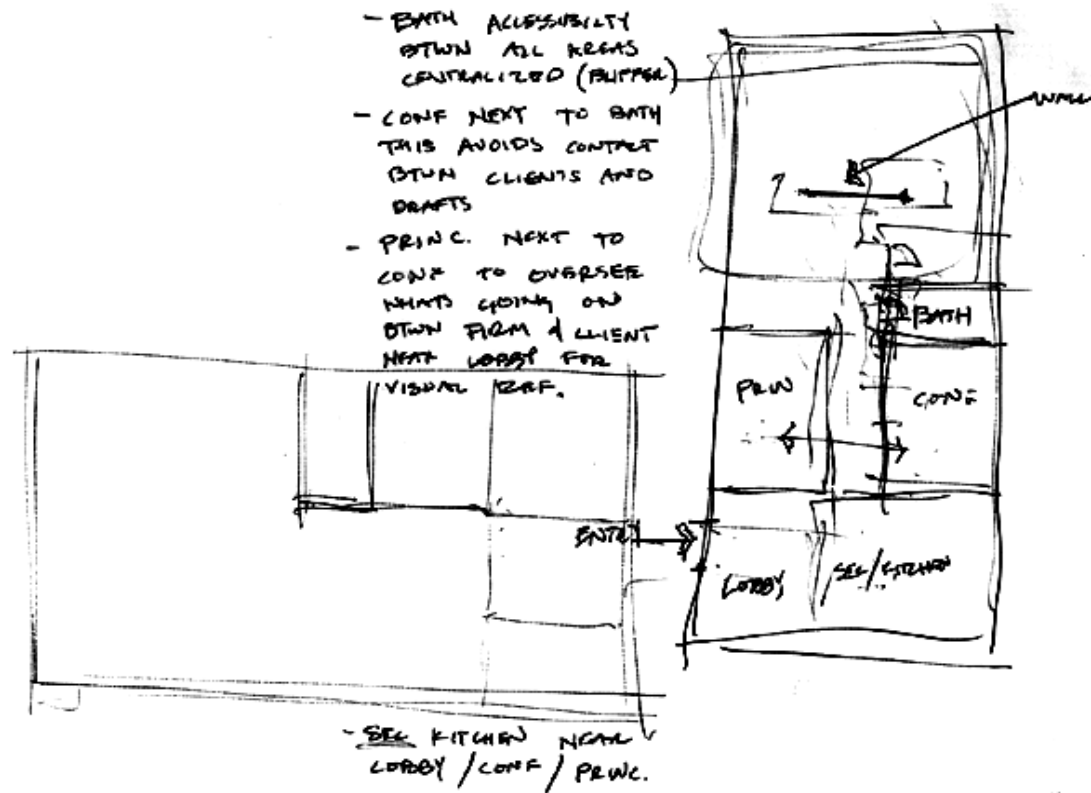 - BATH ACCESSIBILTY
BTWN ALL AREAS
CENTRALIZED (BUFFER)
- CONF NEXT TO BATH
THIS AVOIDS CONTACT
BTWN CLIENTS AND
DRAFTS
- PRINC. NEXT TO
CONF TO OVERSEE
WHATS GOING ON
BTWN FIRM & CLIENT
NEAR LOBBY FOR
VISUAL REF.
WALL
BATH
PRIN
CONF
ENTRY
LOBBY
SEC/KITCHEN
- SEC KITCHEN NEAR
LOBBY / CONF / PRINC.